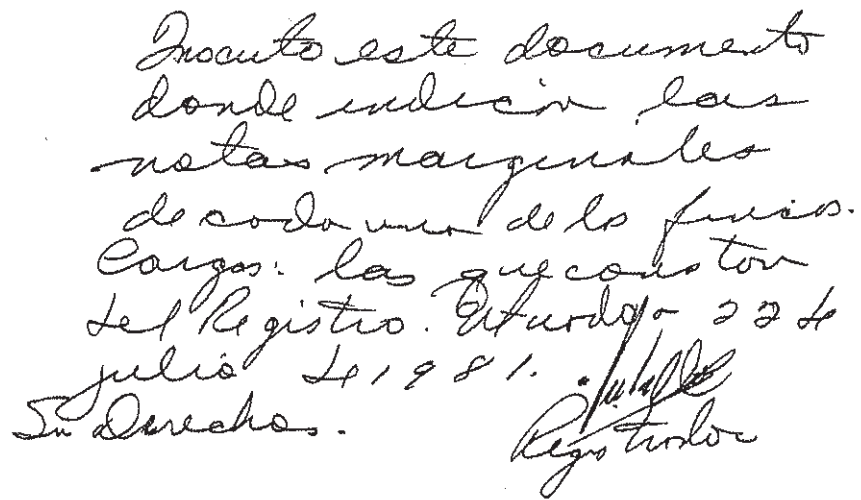 Inscrito este documento
donde indican las
notas marginales
de cada una de las fincas.
Cargas: las que constan
del Registro. Utuado a 22 de
julio de 1981.
Sin Derechos.
Registrador